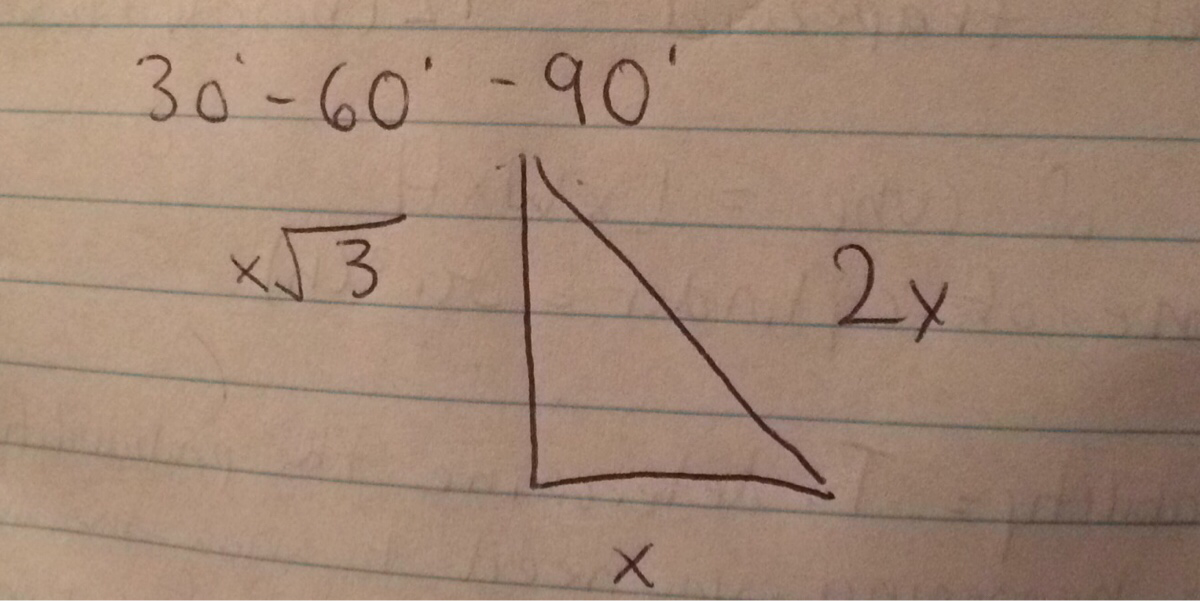 30° - 60° - 90°
x√3
2x
x